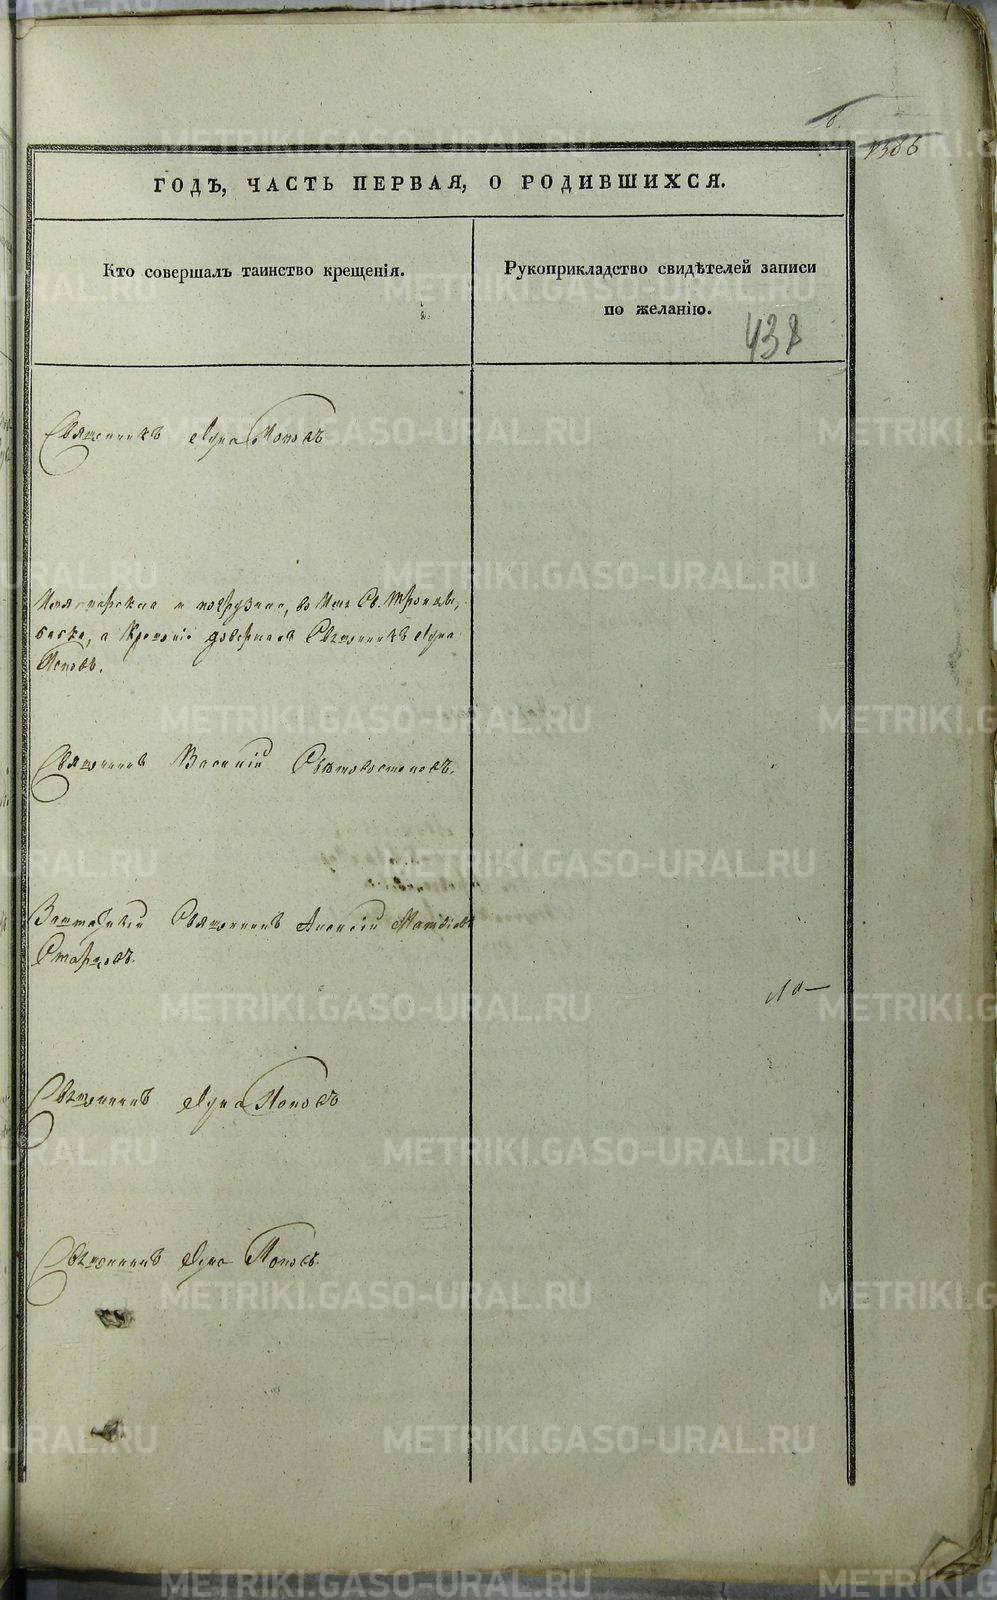 1386
ГОДЪ, ЧАСТЬ ПЕРВАЯ, О РОДИВШИХСЯ.
Кто совершалъ таинство крещенія.
Рукоприкладство свидѣтелей записи
по желанію.
438
Священникъ Лука Поповъ
и погружена, во имя Св. Троицы,
бабка, а Крещеніе довершалъ Священникъ Лука
Поповъ.
Священникъ Василій Свѣтовостоковъ.
Заштатный Священникъ Алексій
Старцовъ.
Священникъ Лука Поповъ
Священникъ Лука Поповъ.
METRIKI.GASO-URAL.RU